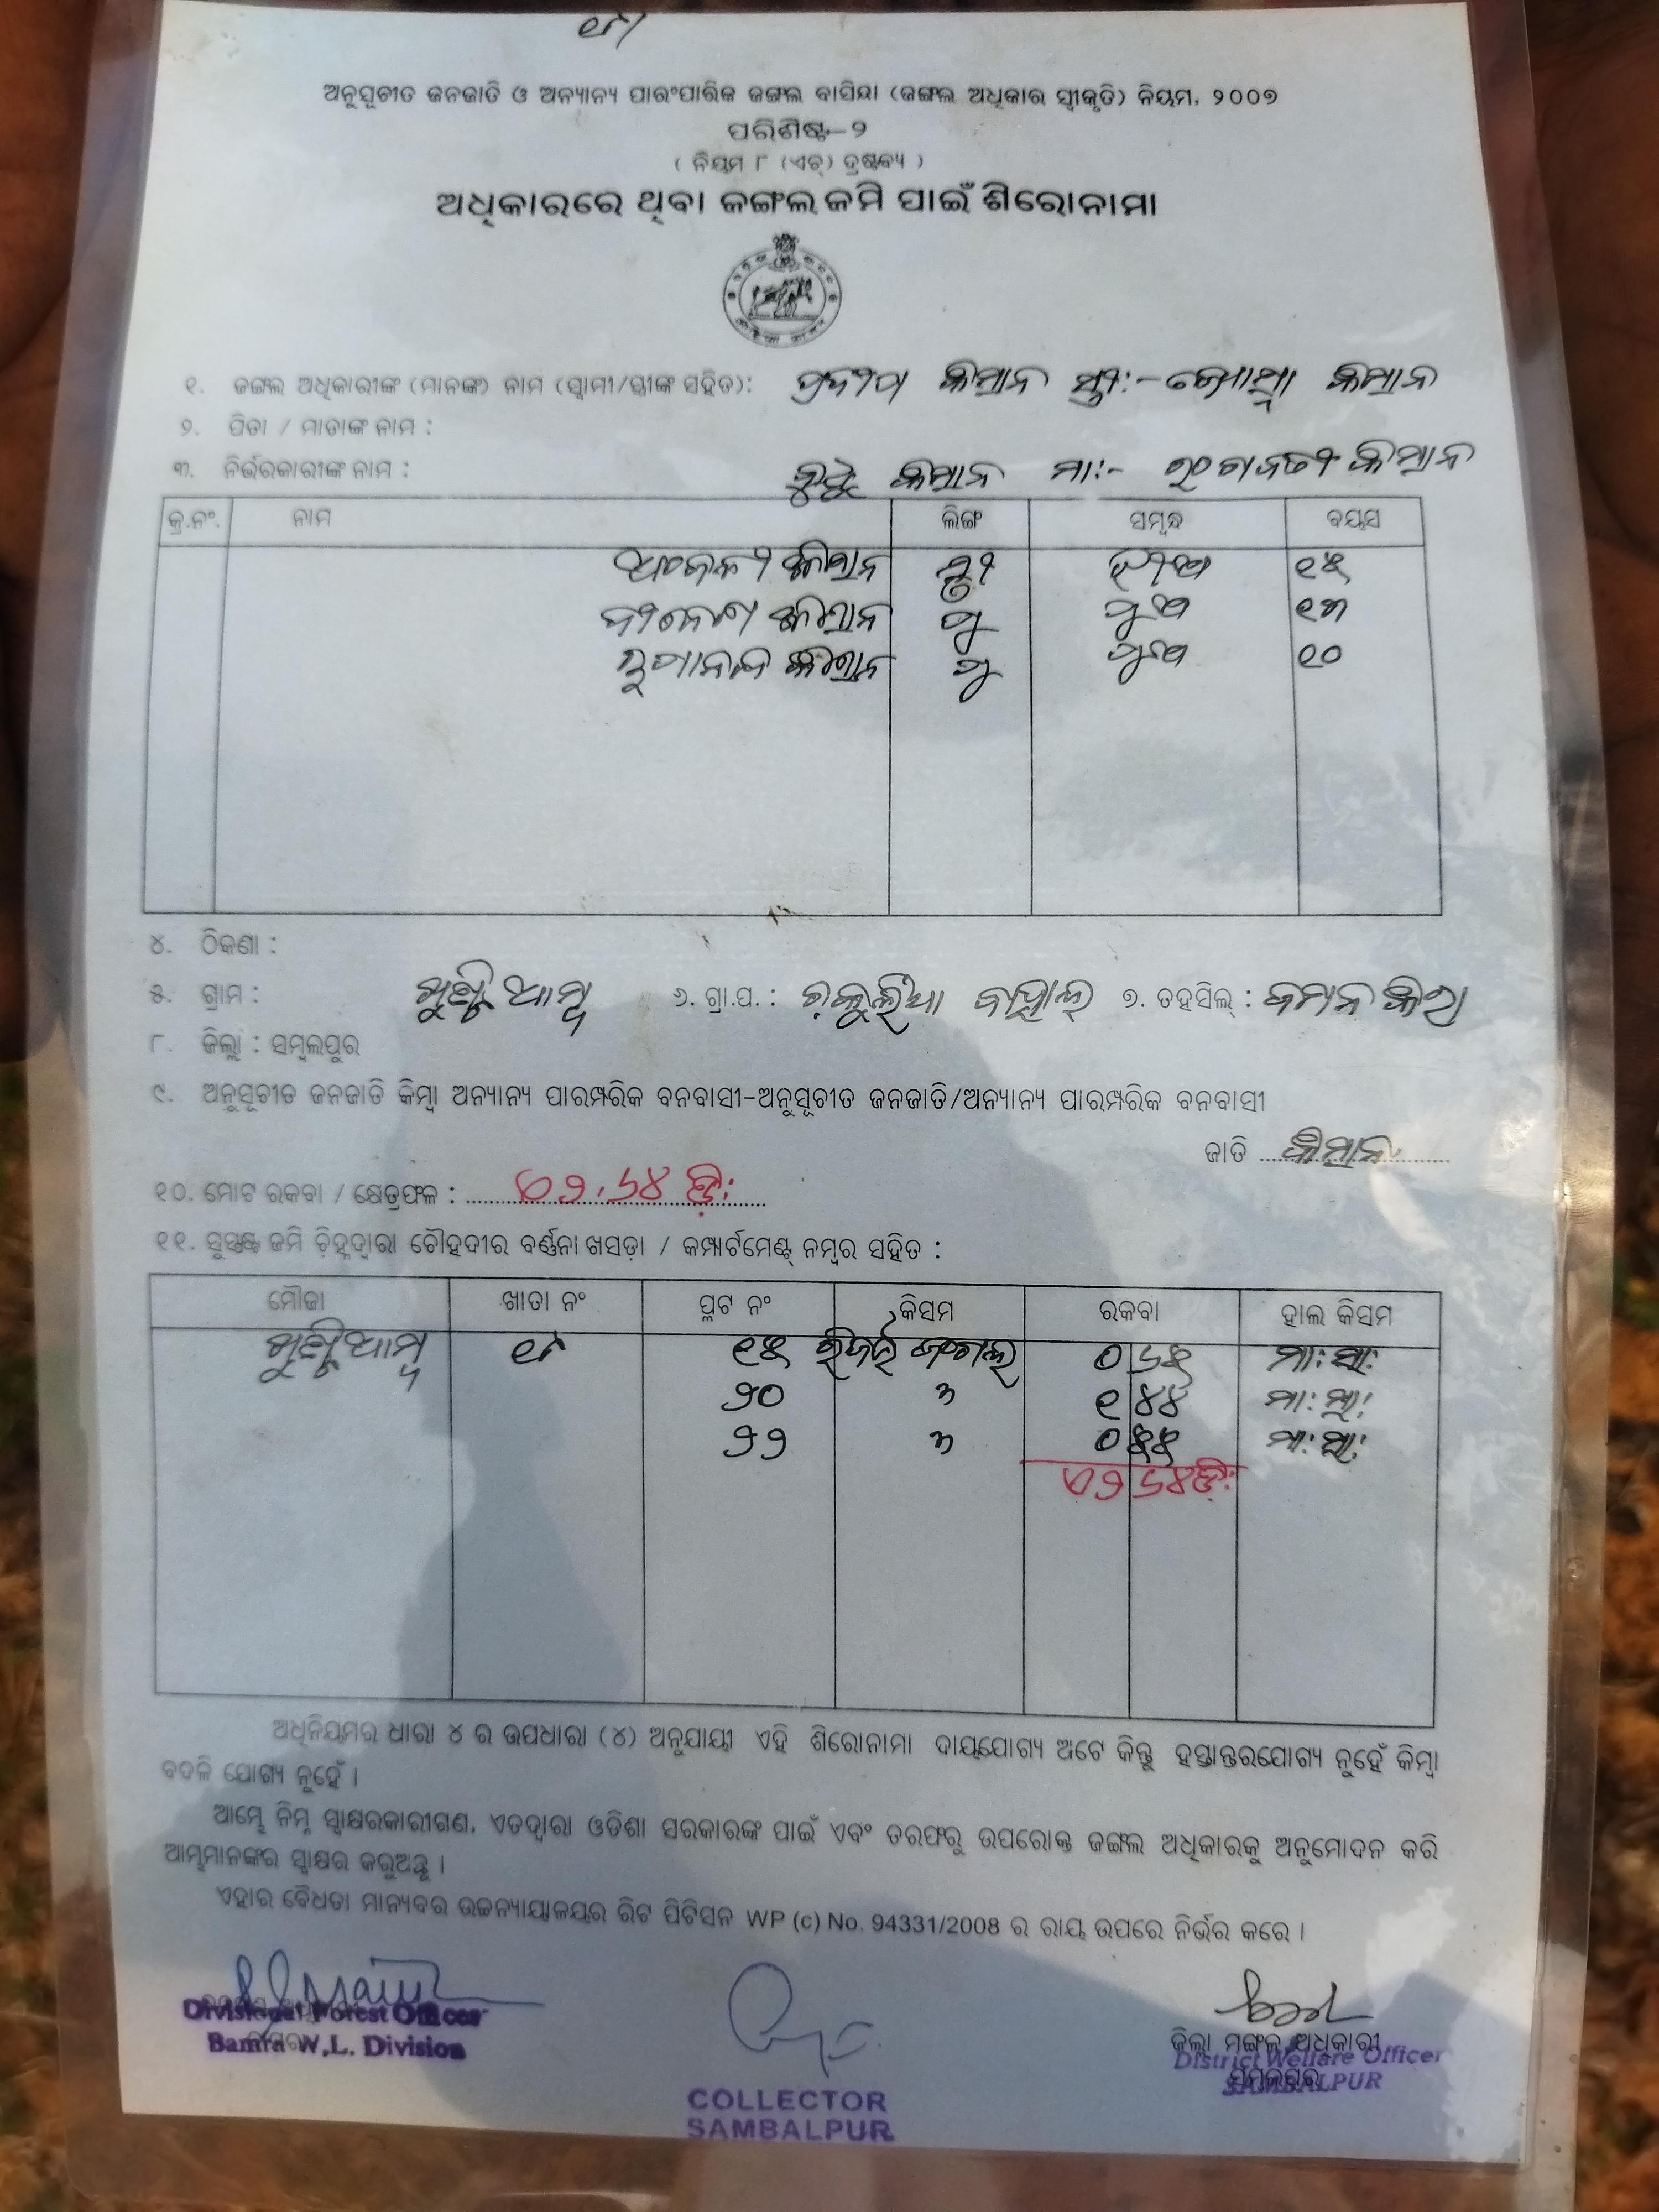 ଅନୁସୂଚୀତ ଜନଜାତି ଓ ଅନ୍ୟାନ୍ୟ ପାରଂପାରିକ ଜଙ୍ଗଲ ବାସିନ୍ଦା (ଜଙ୍ଗଲ ଅଧିକାର ସ୍ୱୀକୃତି) ନିୟମ, ୨୦୦୭
ପରିଶିଷ୍ଟ-୨
( ନିୟମ ୮ (ଏଚ୍) ଦ୍ରଷ୍ଟବ୍ୟ )
ଅଧିକାରରେ ଥିବା ଜଙ୍ଗଲ ଜମି ପାଇଁ ଶିରୋନାମା
୧. ଜଙ୍ଗଲ ଅଧିକାରୀଙ୍କ (ମାନଙ୍କ) ନାମ (ସ୍ୱାମୀ/ସ୍ତ୍ରୀଙ୍କ ସହିତ): କିସାନ ସ୍ତ୍ରୀ:- କିସାନ
୨. ପିତା / ମାତାଙ୍କ ନାମ :
୩. ନିର୍ଭରକାରୀଙ୍କ ନାମ : କିସାନ ମା:- କିସାନ
କ୍ର.ନଂ. ନାମ ଲିଙ୍ଗ ସମ୍ବନ୍ଧ ବୟସ
କୀଶାନ ସ୍ତ୍ରୀ ଝୀଅ ୧୫
କୀଶାନ ପୁ ପୁଅ ୧୩
କୀଶାନ ପୁ ପୁଅ ୧୦
୪. ଠିକଣା :
୫. ଗ୍ରାମ : ୬. ଗ୍ରା.ପ. : ୭. ତହସିଲ୍ : ଜମନକିରା
୮. ଜିଲ୍ଲା : ସମ୍ବଲପୁର
୯. ଅନୁସୂଚୀତ ଜନଜାତି କିମ୍ବା ଅନ୍ୟାନ୍ୟ ପାରମ୍ପରିକ ବନବାସୀ-ଅନୁସୂଚୀତ ଜନଜାତି/ଅନ୍ୟାନ୍ୟ ପାରମ୍ପରିକ ବନବାସୀ
ଜାତି କିସାନ
୧୦. ମୋଟ ରକବା / କ୍ଷେତ୍ରଫଳ : ଏ୨.୬୪ ଡ଼ି:
୧୧. ସୁସ୍ପଷ୍ଟ ଜମି ଚ଼ିହ୍ନଦ୍ୱାରା ଚୌହଦୀର ବର୍ଣ୍ଣନା ଖସଡ଼ା / କମ୍ପାର୍ଟମେଣ୍ଟ୍ ନମ୍ବର ସହିତ :
ମୌଜା ଖାତା ନଂ ପ୍ଳଟ ନଂ କିସମ ରକବା ହାଲ କିସମ
୧୫ ରିଜର୍ଭ ଜଂଗଲ ୦ ୬୫
୨୦ ୧ ୪୪
୨୨ ୦ ୫୫
ଏ୨ ୬୪ଡ଼ି:
ଅଧିନିୟମର ଧାରା ୪ ର ଉପଧାରା (୪) ଅନୁଯାୟୀ ଏହି ଶିରୋନାମା ଦାୟଯୋଗ୍ୟ ଅଟେ କିନ୍ତୁ ହସ୍ତାନ୍ତରଯୋଗ୍ୟ ନୁହେଁ କିମ୍ବା
ବଦଳି ଯୋଗ୍ୟ ନୁହେଁ ।
ଆମ୍ଭେ ନିମ୍ନ ସ୍ୱାକ୍ଷରକାରୀଗଣ, ଏତଦ୍ୱାରା ଓଡିଶା ସରକାରଙ୍କ ପାଇଁ ଏବଂ ତରଫରୁ ଉପରୋକ୍ତ ଜଙ୍ଗଲ ଅଧିକାରକୁ ଅନୁମୋଦନ କରି
ଆମ୍ଭମାନଙ୍କର ସ୍ୱାକ୍ଷର କରୁଅଛୁ ।
ଏହାର ବୈଧତା ମାନ୍ୟବର ଉଚ୍ଚନ୍ୟାୟାଳୟର ରିଟ ପିଟିସନ WP (c) No. 94331/2008 ର ରାୟ ଉପରେ ନିର୍ଭର କରେ ।
Divisional Forest Officer
Bamra W.L. Division
COLLECTOR
SAMBALPUR
ଜିଲ୍ଲା ମଙ୍ଗଳ ଅଧିକାରୀ
District Welfare Officer
ସମ୍ବଲପୁର
SAMBALPUR